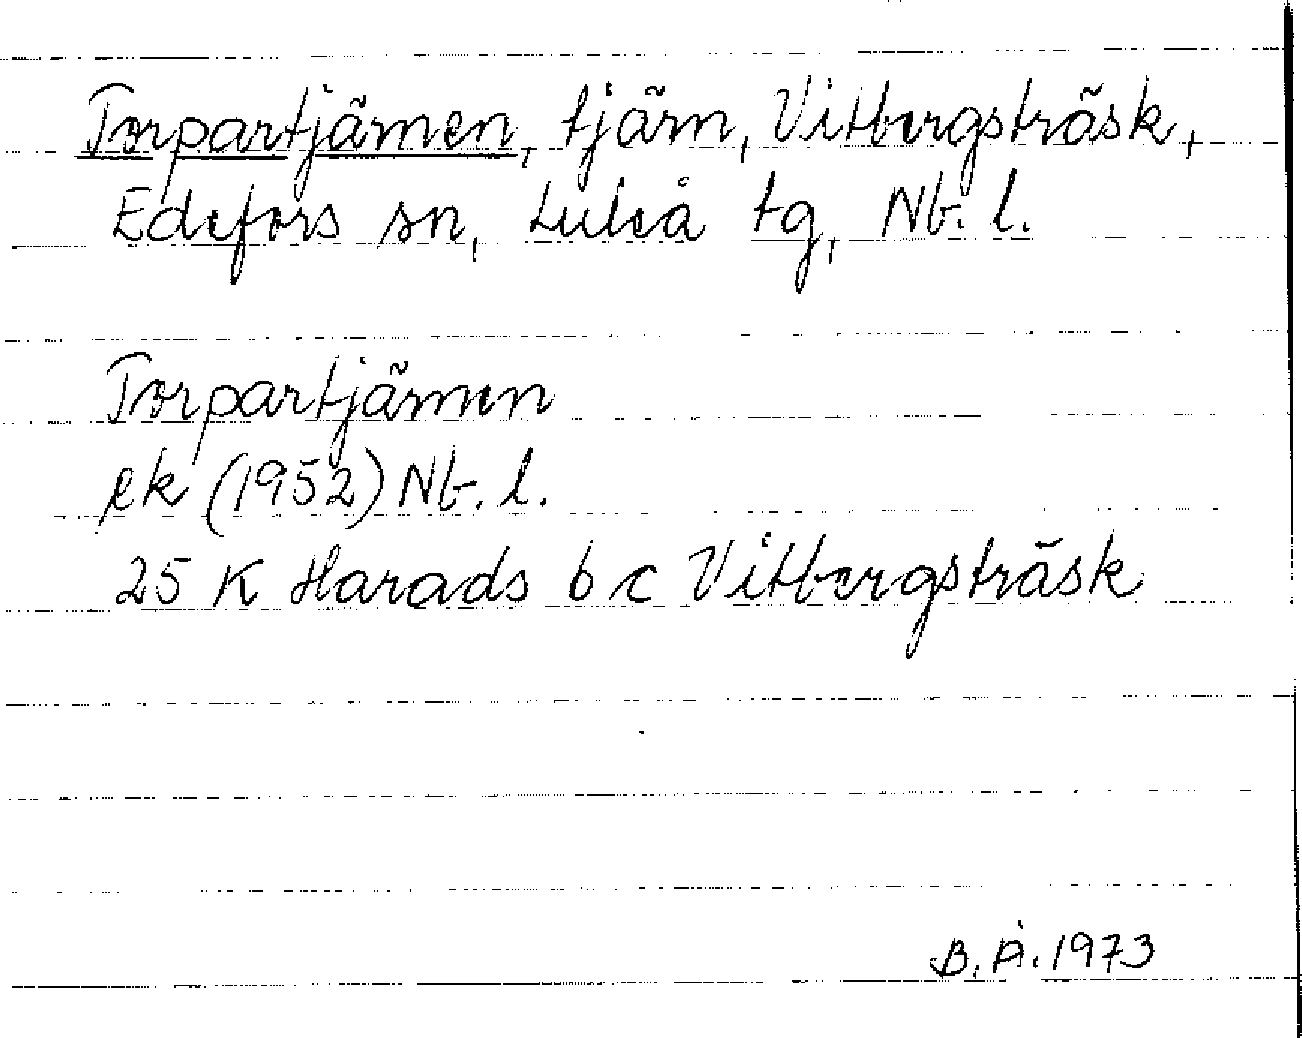 Torpartjärnen, tjärn, Vitbergsträsk,
Edefors sn, Luleå tg, Nb. l.
Torpartjärnen
ek (1952) Nb. l.
25 K Harads b c Vitbergsträsk
B. Å. 1973